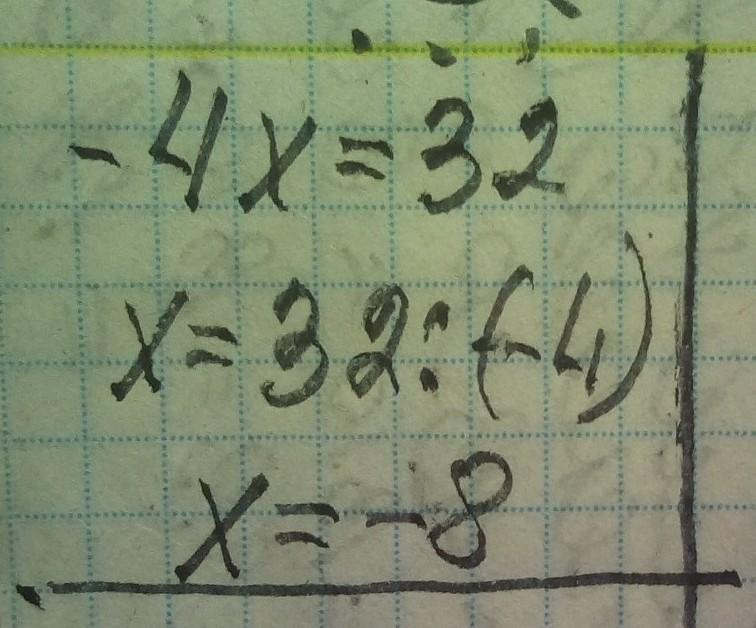 -4x=32
x=32:(-4)
x=-8